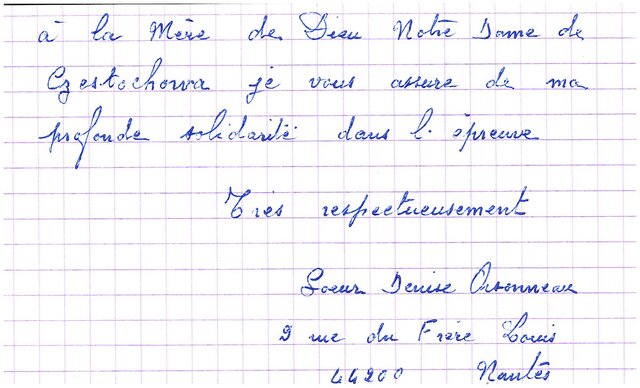 à la Mère de Dieu Notre Dame de
Częstochowa je vous assure de ma
profonde solidarité dans l'épreuve
Très respectueusement
Soeur Denise
9 rue du Frère Louis
44200 Nantes